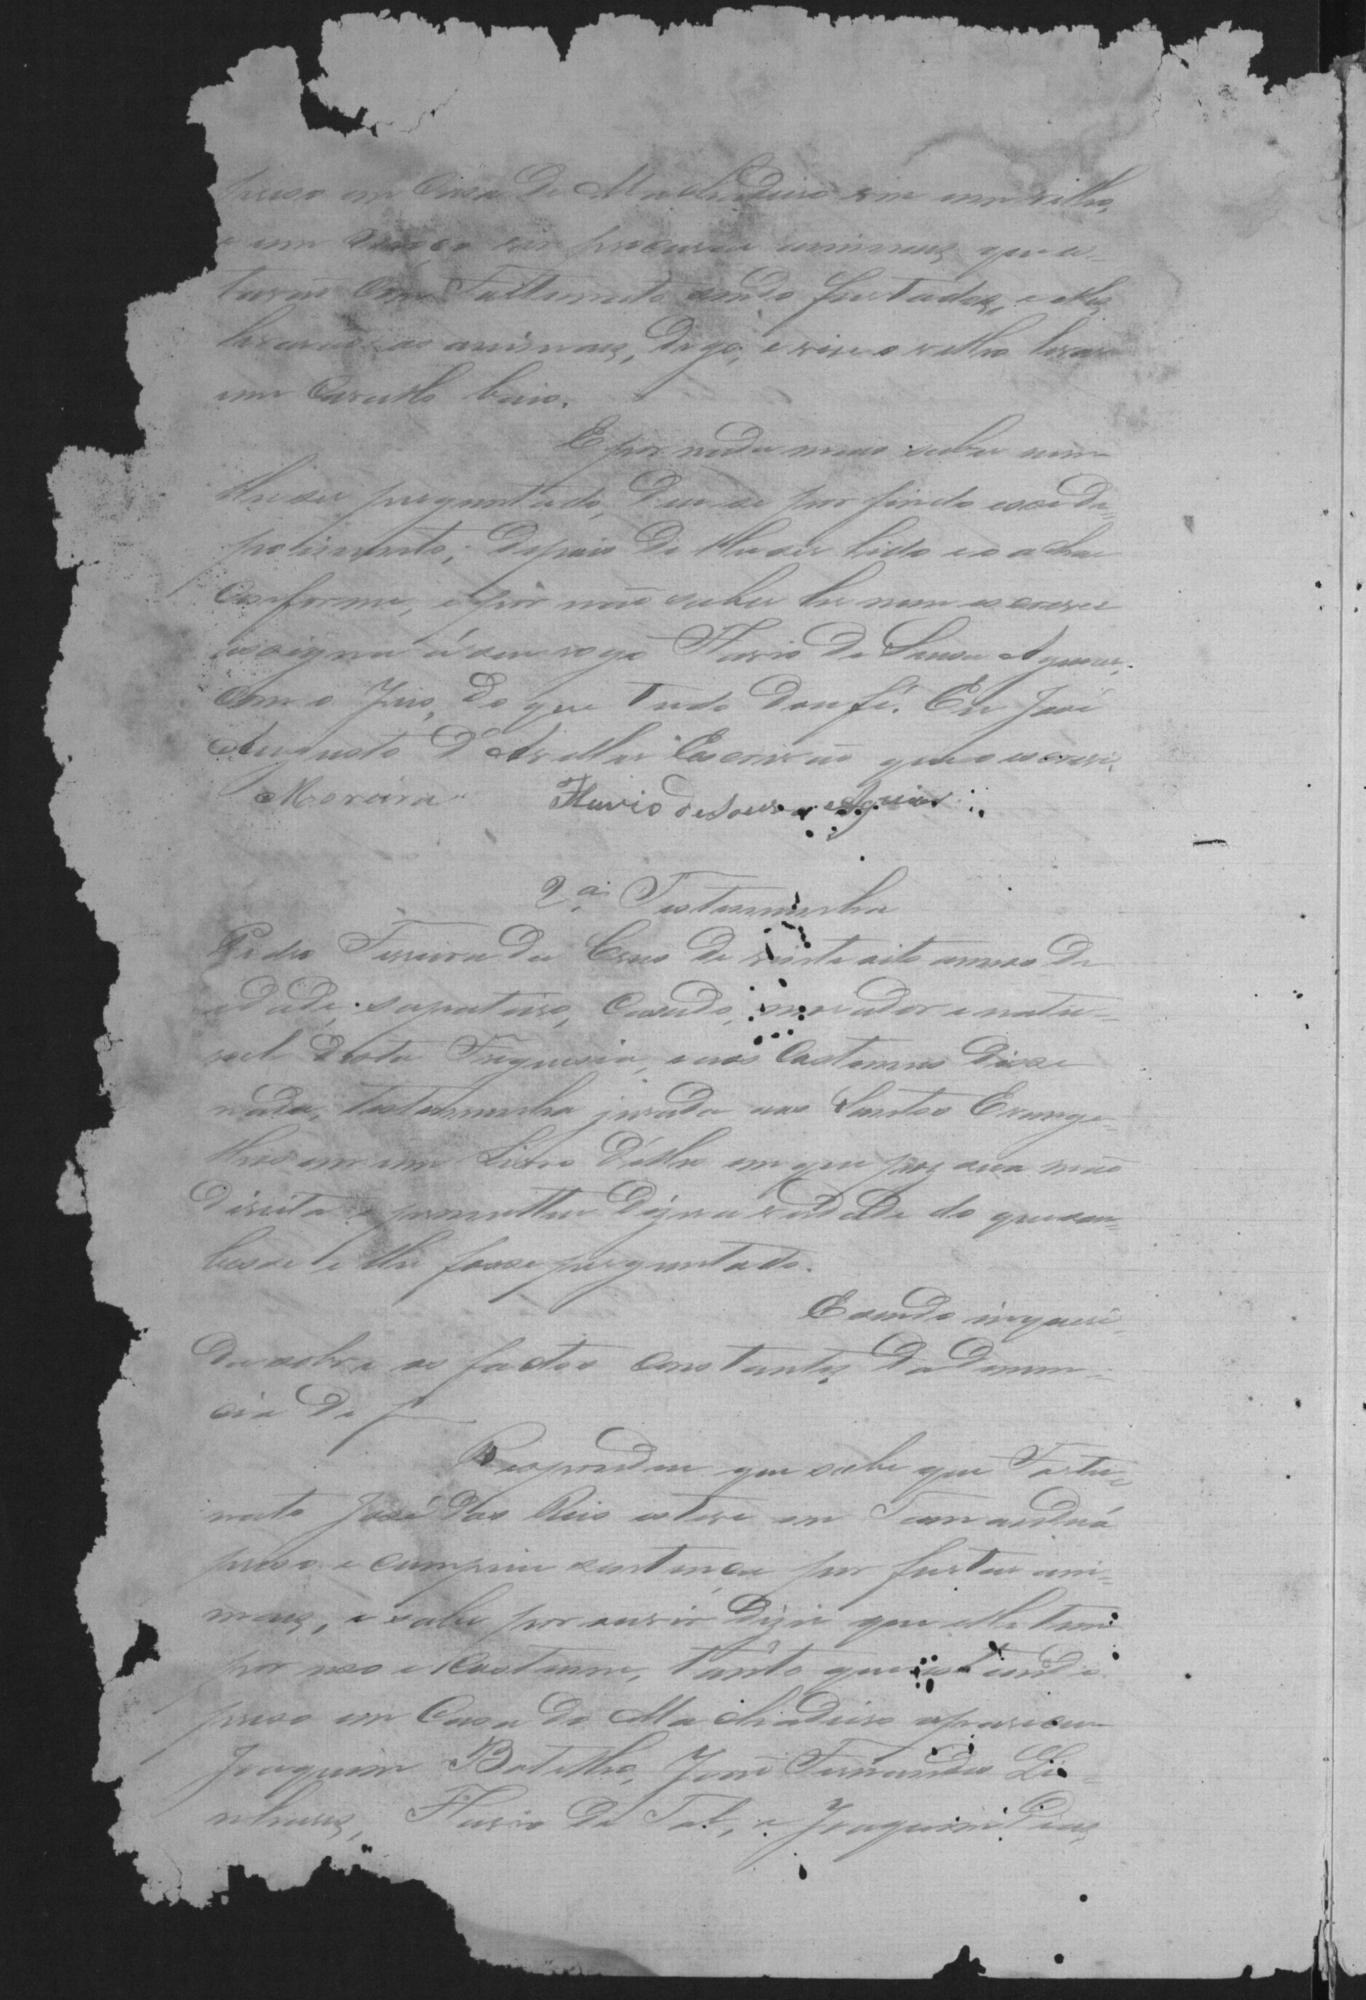 preso em Casa de Machadeiro vem um velho,
e um moço em procura animaes que es-
tavão com Fortunato sendo furtados, e elles
levarão os animaes, digo, e vio o velho levar
um Cavallo baio.
E por nada mais saber nem
lhe ser perguntado, deu-se por findo esse de-
poimento; depois de lhe ser lido e o achar
conforme, e por não saber ler nem escrever
assigna á seu rogo Flavio de Sousa Aguiar,
com o Juiz, do que tudo dou fé. Eu José
Augusto d'Avellar Escrivão que o escrevi.
Moreira Flavio de Sousa e Aguiar
2ª Testemunha
Pedro Ferreira da Cruz de vinte oito annos de
idade, sapateiro, casado, morador e natu-
ral desta Freguesia, e aos costumes disse
nada, testemunha jurada aos Santos Evange-
lhos em um Livro d'elles em que poz sua mão
direita e prometteu dizer a verdade do que sou-
besse e lhe fosse perguntado.
E sendo inqueri-
do sobre os factos constantes da denun-
cia de f
Respondeu que sabe que Fortu-
nato José dos Reis esteve em Tamanduá
preso e cumpriu sentença por furtar ani-
maes, e sabe por ouvir dizer que elle tem
por uso e costume, tanto que estando
preso em Casa do Machadeiro appareceu
Joaquim Botelho, José Fernandes Li-
nhares, Flavio de Tal, e Joaquim Dias